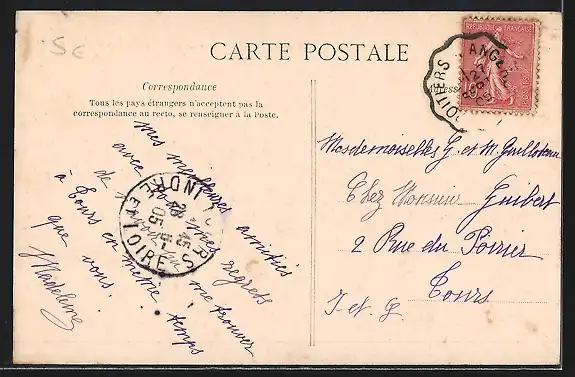 5€
CARTE POSTALE
Correspondance
Tous les pays étrangers n'acceptent pas la
correspondance au recto, se renseigner à la Poste.
Mes meilleures amitiés
avec tous mes regrets
de ne pas me trouver
à Tours en même temps
que vous.
Madeleine
TOURS
INDRE ET LOIRE
REPUBLIQUE FRANÇAISE
ANGERS
POITIERS
Adresse
Mesdemoiselles G. et M. Guilloteau
Chez Monsieur Guibert
2 Rue du Poirier
Tours
I. et L.